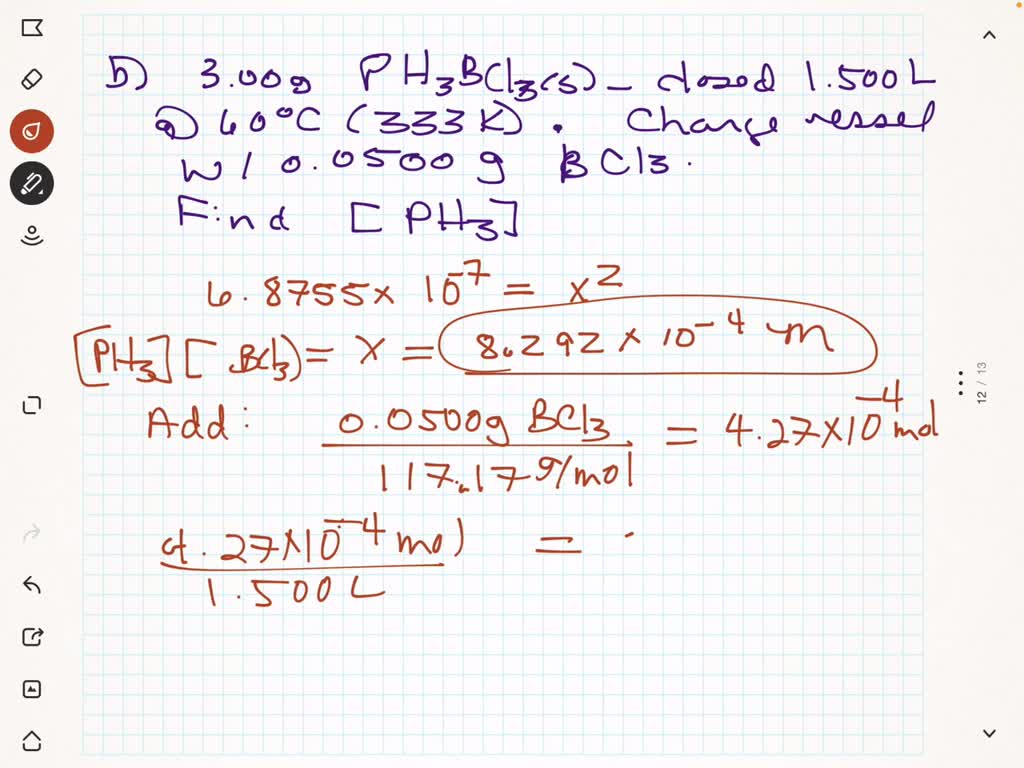 b) 3.00g PH3BCl3(s) - closed 1.500L
@ 60°C (333K). Charge vessel
w/ 0.0500g BCl3.
Find [PH3]
6.8755x 10^-7 = x^2
[PH3][BCl3) = x = 8.292 x 10^-4 m
Add: 0.0500g BCl3 / 117.17 g/mol = 4.27x10^-4 mol
4.27x10^-4 mol / 1.500L =
12 / 13